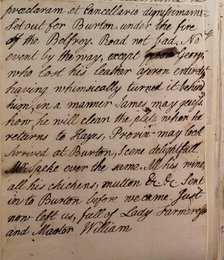 proeclaram et Cancellaria dignissimam
Set out for Burton, under the fire
of the Belfrey. Road not bad. No
event by the way, except Gory,
who lost his leather apron entirely
having whimsically turned it behind
him, in a manner James may question
how he will clean the plate when he
returns to Hays, Provin may look
Arrived at Burton, scene delightfull
spoke ever the same. All his wine,
all his chickens, mutton &c &c sent
in to Burton before we came. Just
now left us, full of Lady Farmery
and Master William